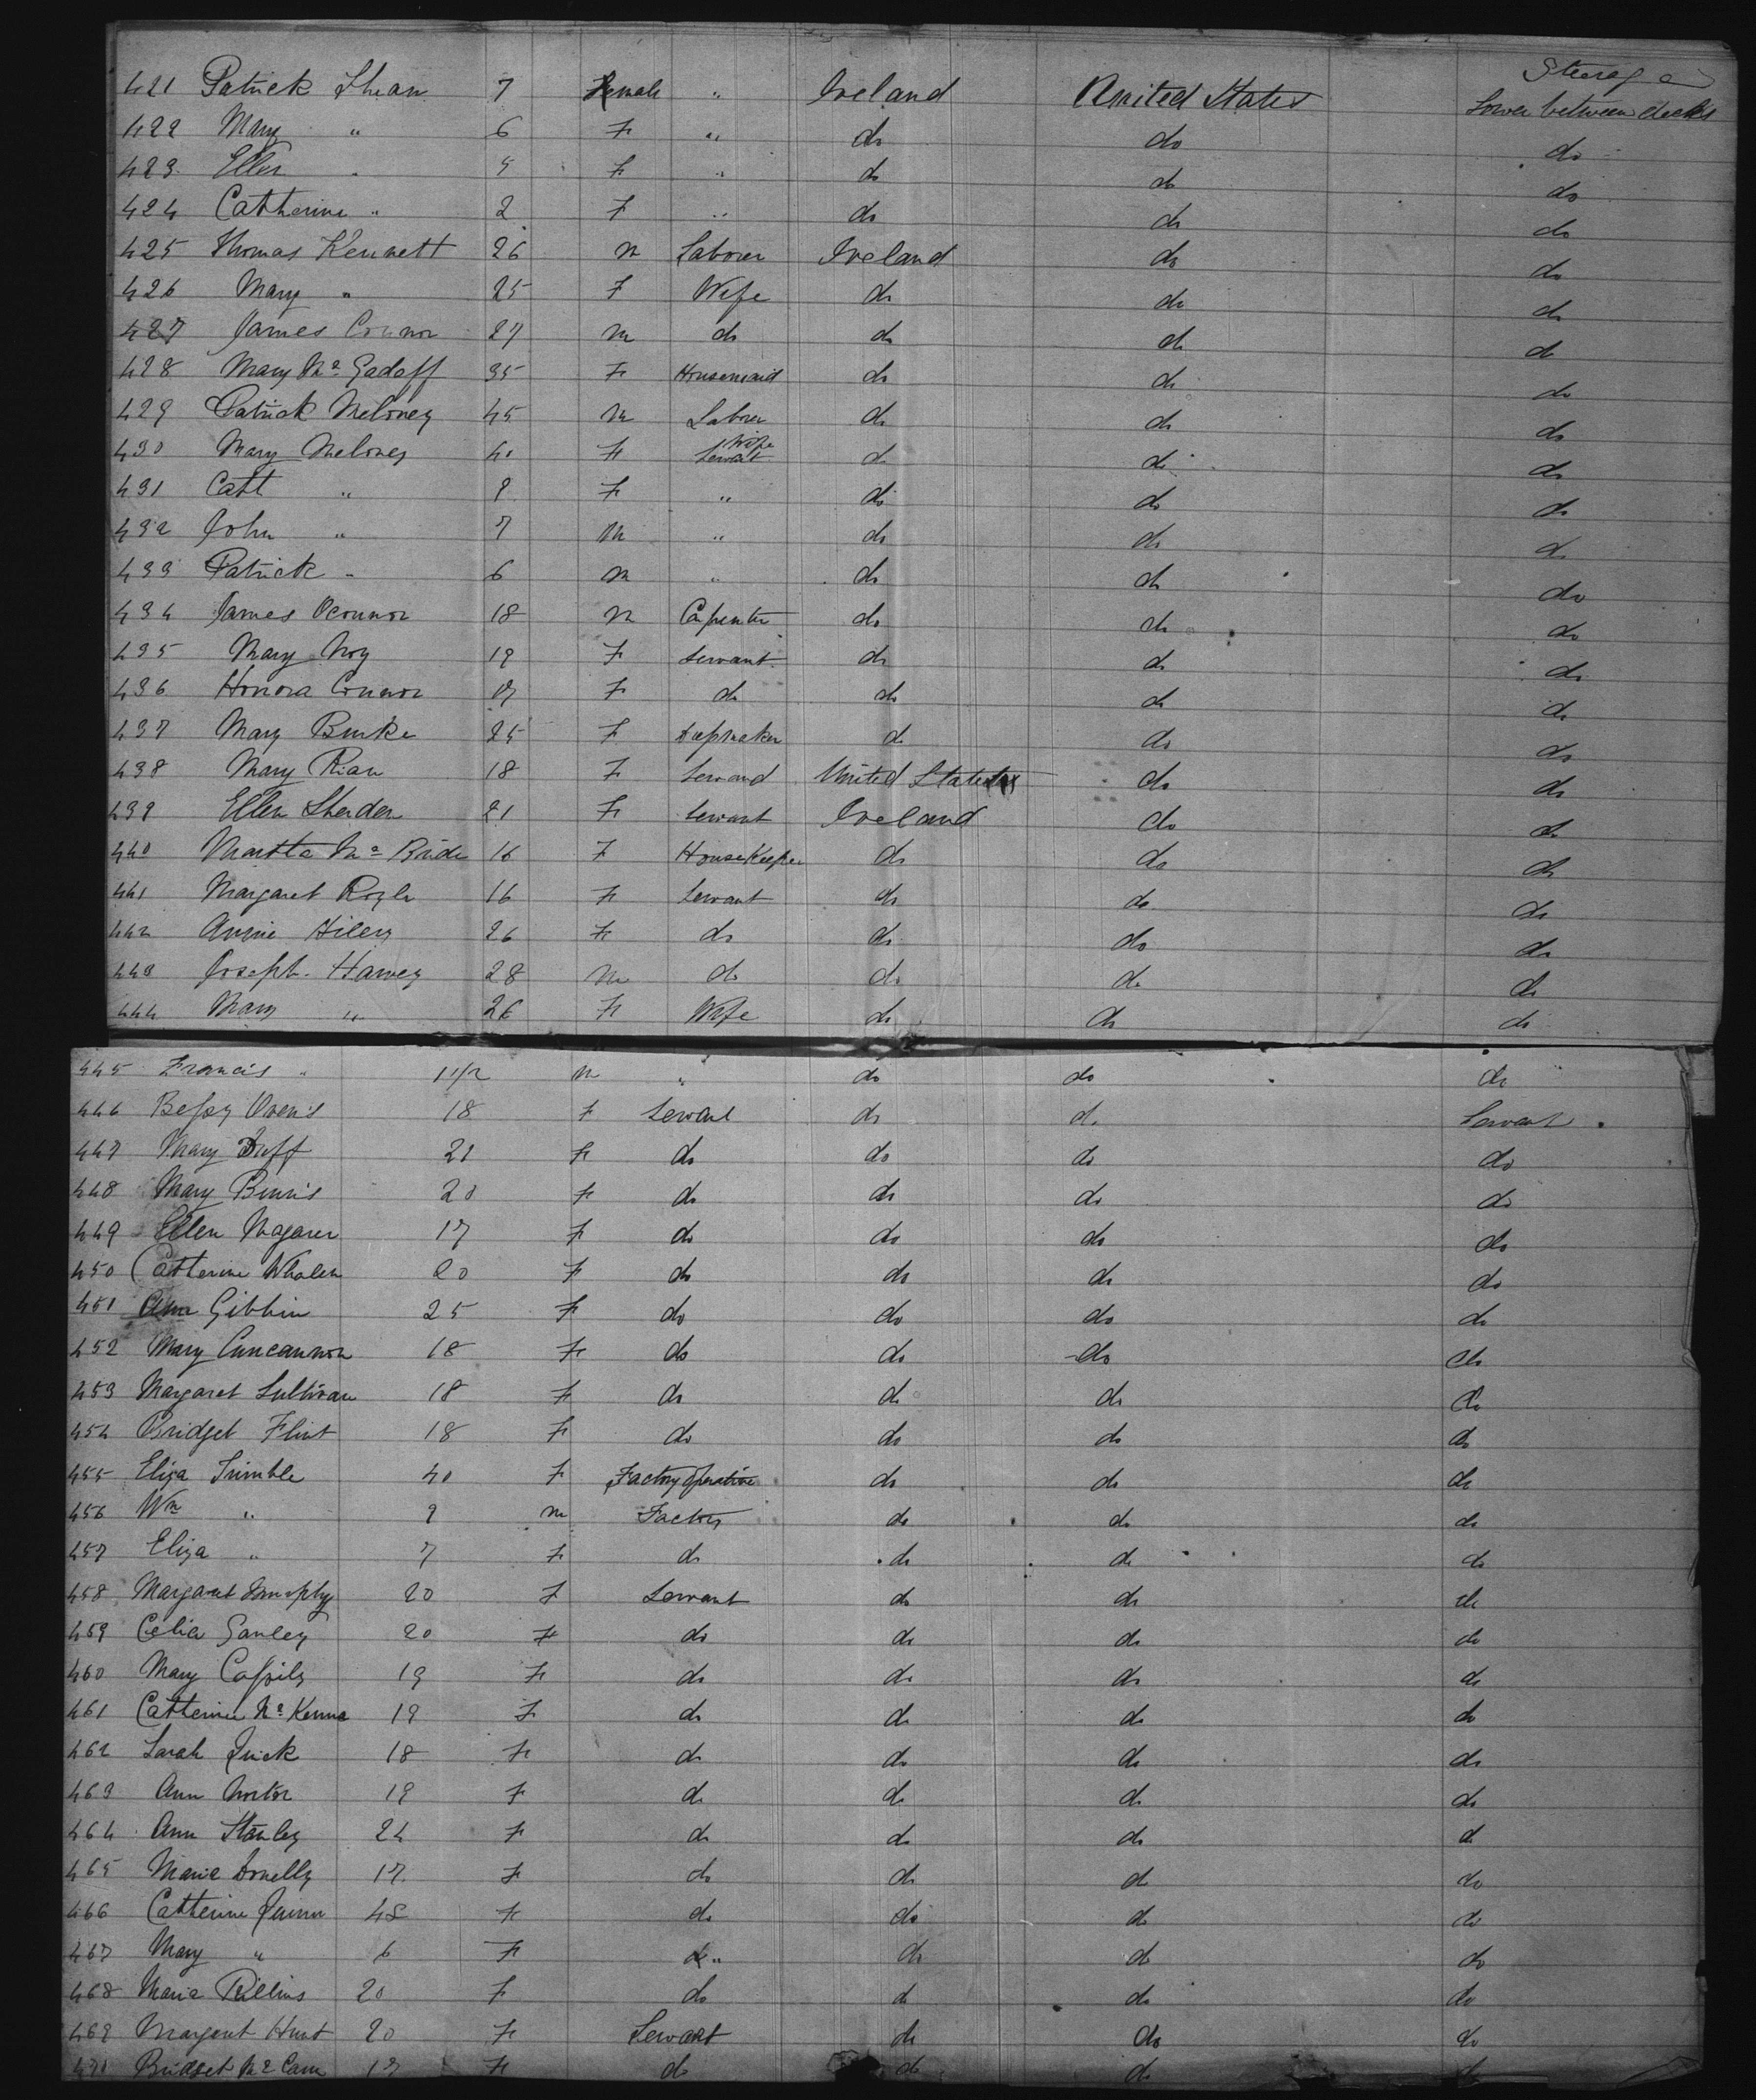 Steerage
421 Patrick Shean 7 Female " Ireland United States Lower between decks
422 Mary " 6 F " do do do
423 Ellen " 5 F " do do do
424 Catherine " 2 F " do do do
425 Thomas Kennett 26 M Laborer Ireland do do
426 Mary " 25 F Wife do do do
427 James Connor 27 M do do do do
428 Mary Mc Gadoff 35 F Housemaid do do do
429 Patrick Meloney 45 M Laborer do do do
430 Mary Meloney 40 F Servant Wife do do do
431 Cath " 9 F " do do do
432 John " 7 M " do do do
433 Patrick " 6 M " do do do
434 James Oconnor 18 M Carpenter do do do
435 Mary Noy 19 F Servant do do do
436 Honora Connor 17 F do do do do
437 Mary Burke 25 F do do do
438 Mary Rian 18 F Servand United States do do
439 Ellen Sheriden 21 F Servant Ireland do do
440 Martha Mc Bride 16 F HouseKeeper do do do
441 Margaret Royle 16 F Servant do do do
442 Annie Hiley 26 F do do do do
443 Joseph Harvey 28 M do do do do
444 Mary " 26 F Wife do do do
445 Francis " 11/12 M " do do do
446 Bessy Owens 18 F Servant do do Servant
447 Mary Duff 21 F do do do do
448 Mary Burns 20 F do do do do
449 Ellen Magarer 17 F do do do do
450 Catherine Whalen 20 F do do do do
451 Ann Gibbin 25 F do do do do
452 Mary Cuncannon 18 F do do do do
453 Margaret Sullivan 18 F do do do do
454 Bridget Flint 18 F do do do do
455 Eliza Trimble 40 F Factory Operative do do do
456 Wm " 9 M Factory do do do
457 Eliza " 7 F do do do do
458 Margaret 20 F Servant do do do
459 Celia Ganley 20 F do do do do
460 Mary Cassily 19 F do do do do
461 Catherine Mc Kenna 19 F do do do do
462 Sarah Quick 18 F do do do do
463 Ann Norton 19 F do do do do
464 Ann Stanley 24 F do do do do
465 Maria Donelly 17 F do do do do
466 Catherine Quinn 48 F do do do do
467 Mary " 6 F " do do do
468 Maria Rillins 20 F do do do do
469 Margaret Hunt 20 F Servant do do do
470 Bridget Mc Cann 17 F do do do do